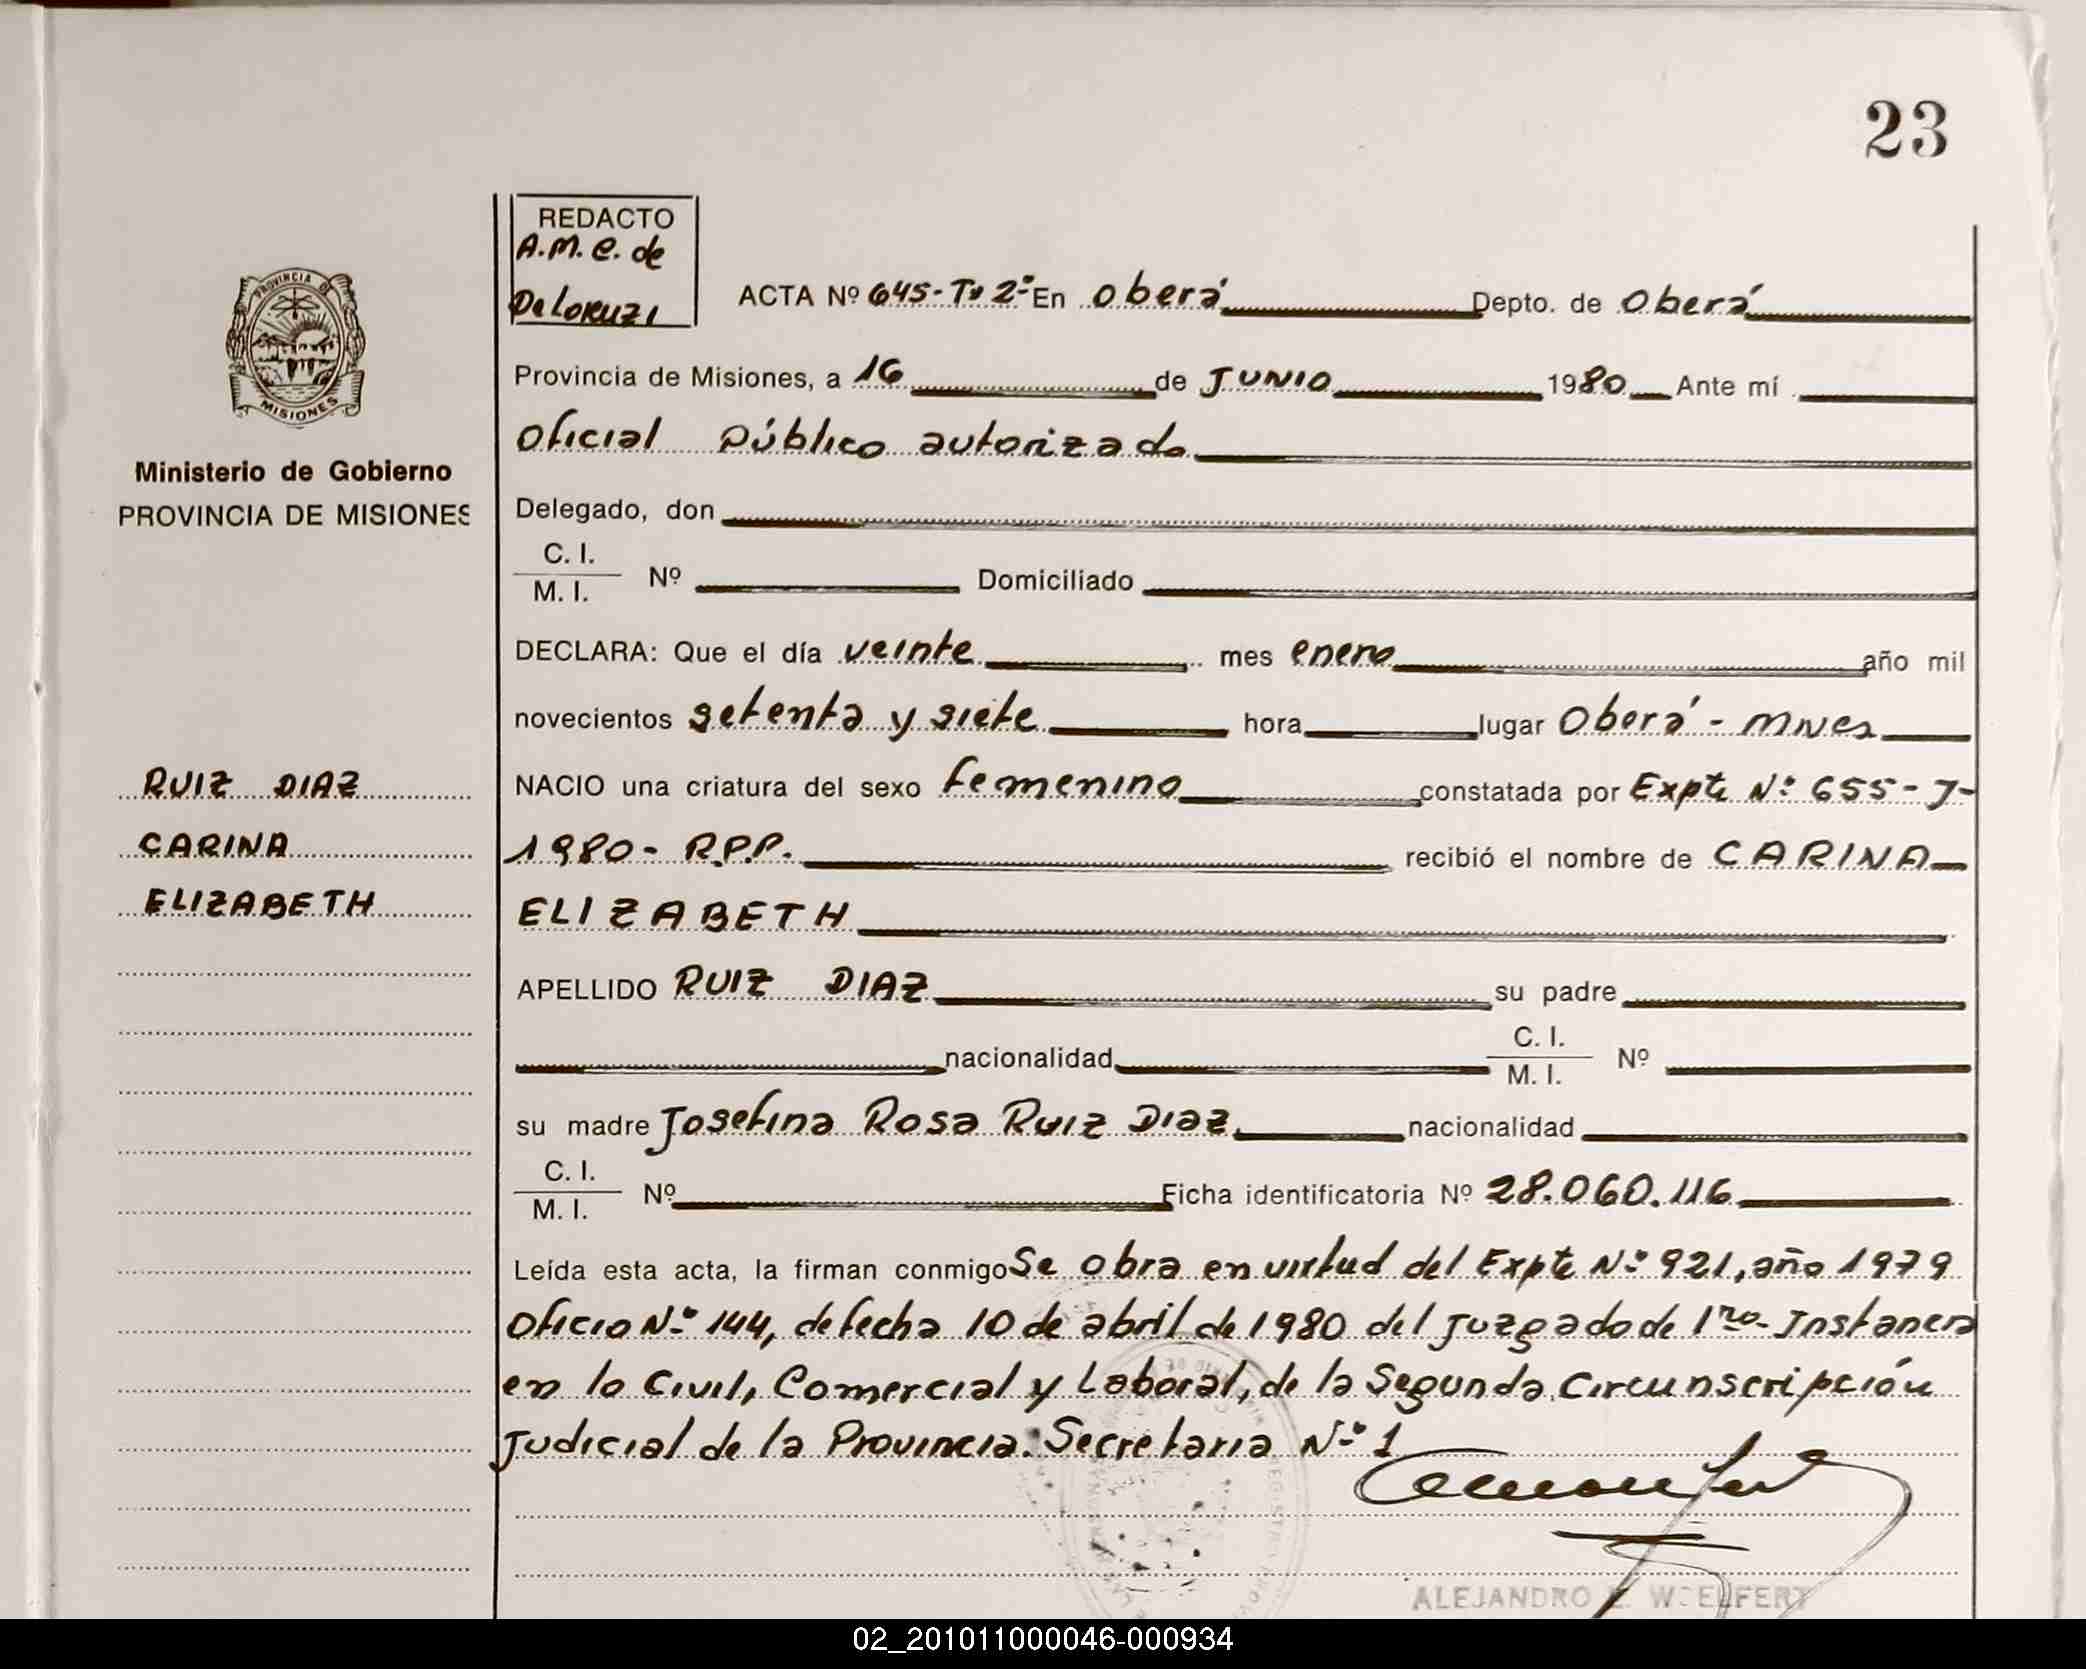 23
REDACTO
A.M.C. de
De Loruzi
ACTA Nº 645-Tº 2º En Oberá Depto. de Oberá
PROVINCIA DE
MISIONES
Provincia de Misiones, a 16 de JUNIO 1980 Ante mí
Oficial Público autorizado
Ministerio de Gobierno
PROVINCIA DE MISIONES
Delegado, don
C. I.
M. I. Nº Domiciliado
DECLARA: Que el día veinte mes enero año mil
novecientos setenta y siete hora lugar Oberá - Mnes
RUIZ DIAZ
NACIO una criatura del sexo femenino constatada por Expte Nº 655-J-
CARINA
1980- R.P.P. recibió el nombre de CARINA
ELIZABETH
ELIZABETH
APELLIDO RUIZ DIAZ su padre
nacionalidad C. I.
M. I. Nº
su madre Josefina Rosa Ruiz Diaz nacionalidad
C. I.
M. I. Nº Ficha identificatoria Nº 28.060.116
Leída esta acta, la firman conmigo Se obra en virtud del Expte Nº 921, año 1979
Oficio Nº 144, de fecha 10 de abril de 1980 del Juzgado de 1ra Instancia
en lo Civil, Comercial y Laboral, de la Segunda Circunscripción
Judicial de la Provincia. Secretaria Nº 1
ALEJANDRO E. WOELFERT
02_201011000046-000934